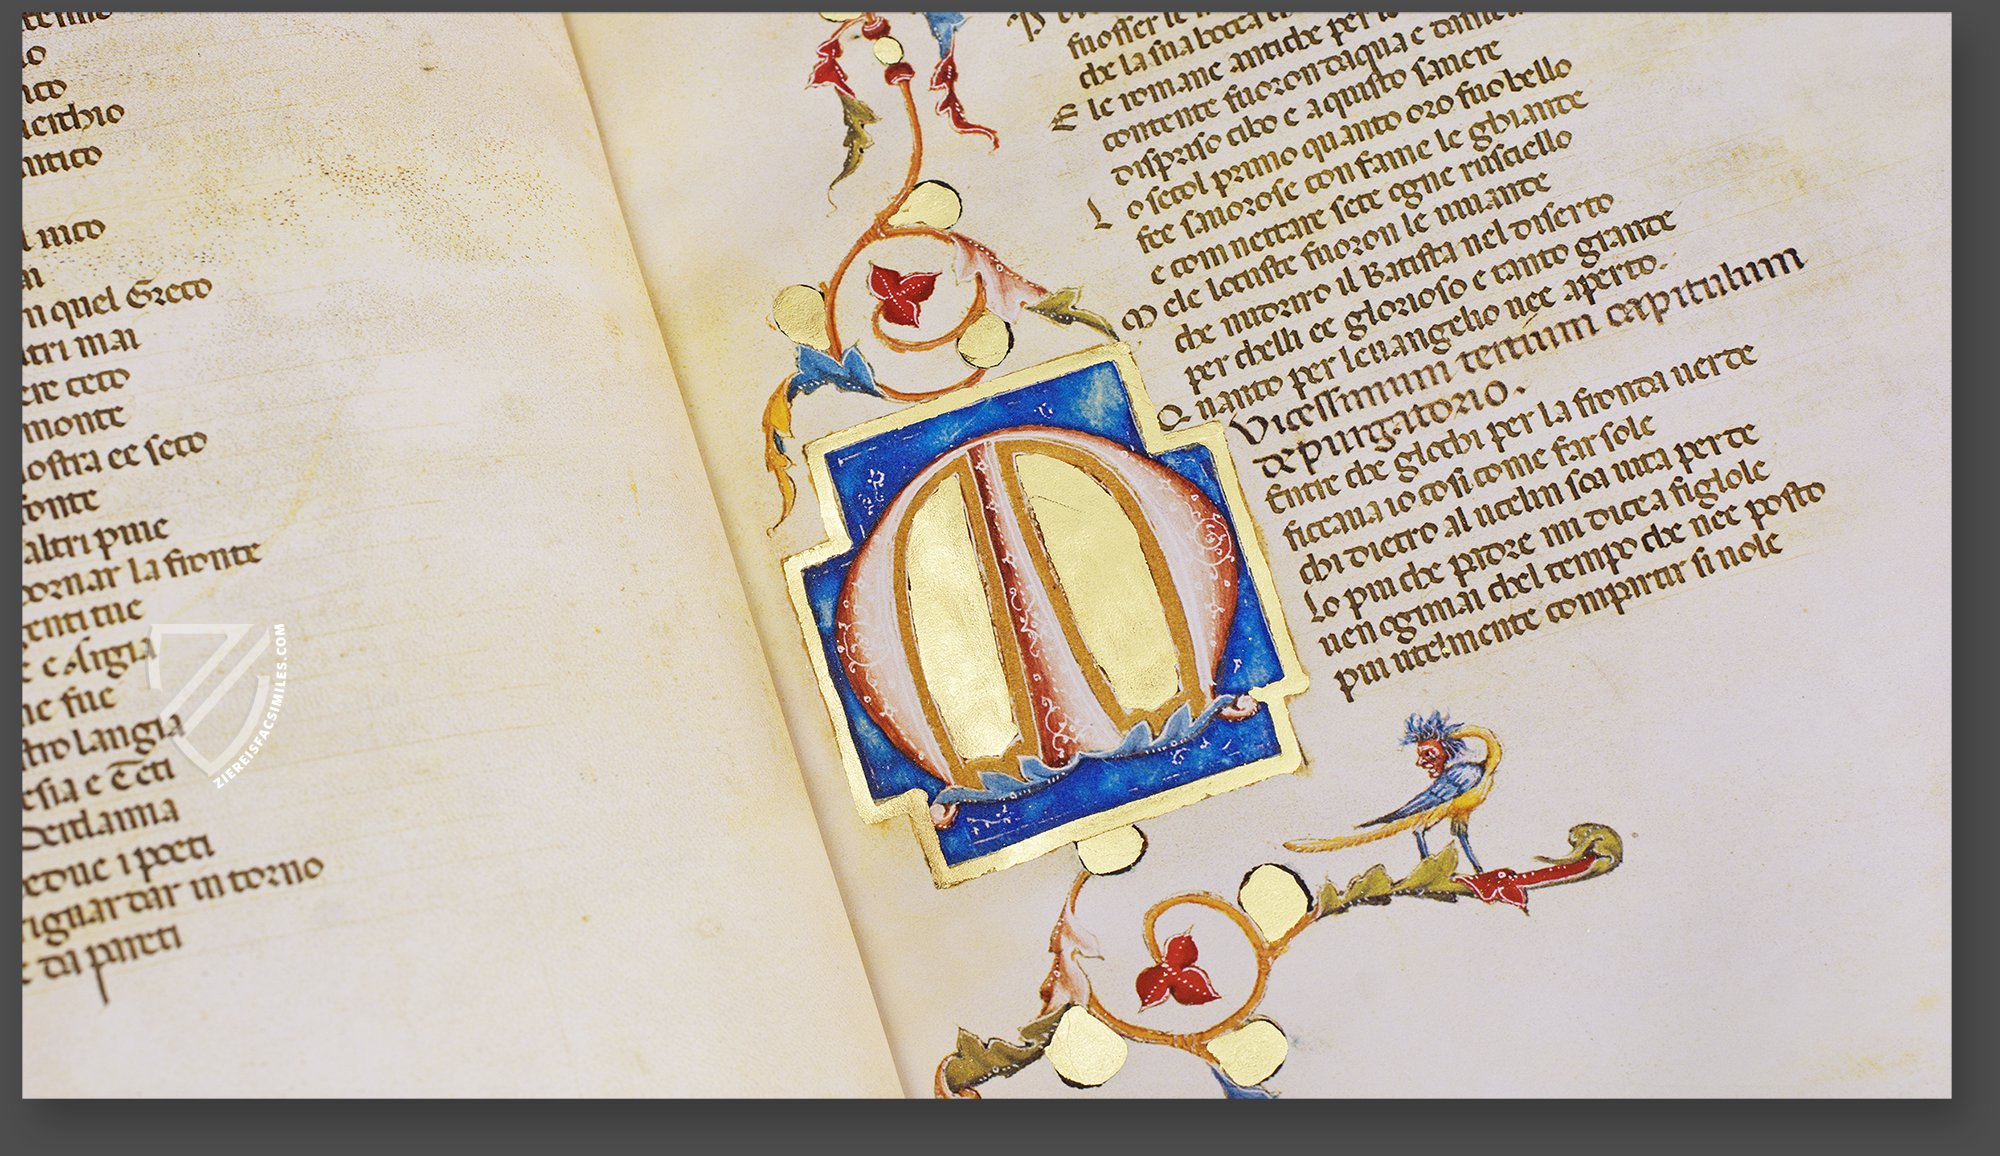 ico
aerchio
antico
a nico
ai
n quel Greco
atri mai
ere ceco
monte
nostra ee seco
fonte
altri pine
dornar la fronte
genti tue
e e Argia
he fue
stro langia
esia e Teti
Deitlamia
edue i poeti
riguardar in torno
e da pareti
ZIEREISFACSIMILES.COM
fuosser le
che la sua bocca
E le romane antiche per lo
contente fuoron daqua e daniel
dispriso cibo e aquisto sauere
L o secol primo quanto oro fuo bello
fee sauorose con fame le ghiande
e com nettare sete ogne rusciello
M ele locuste fuoron le uiuande
che nutriro il Batista nel diserto
per chelli ee glorioso e tanto grande
Q uanto per leuangelio uee aperto.
Vicessimum tertium capitulum
de purgatorio.
M Entre che gliocchi per la fronda uerde
ficcaua io cosi come far sole
chi dietro al ucellin sua uita perde
Lo piu che padre mi dicea figlole
uen ogimai chel tempo che nee posto
piu utelmente compartir si uole